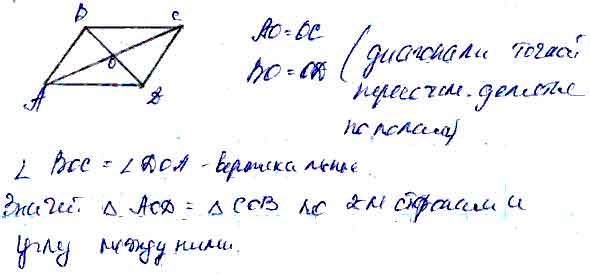 B C
O
A D
AO = OC
BO = OD (диагонали точкой
пересечен. делятся
пополам)
∠ BOC = ∠ DOA - вертикальные.
Значит △ AOD = △ COB по 2м сторонам и
углу между ними.